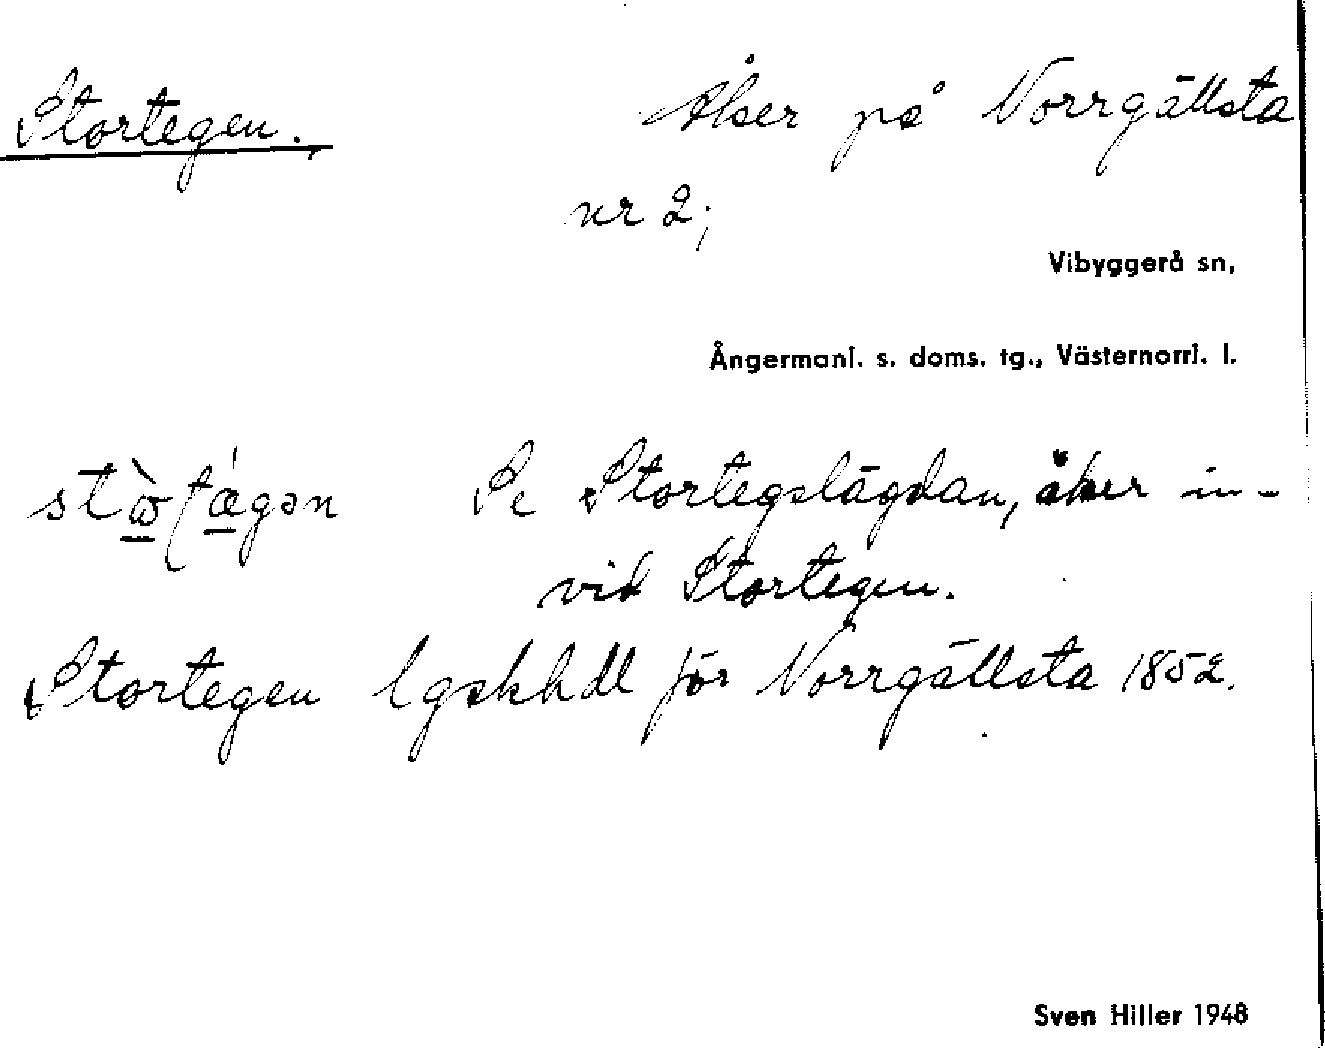 Stortegen.
Åker på Norrgällsta
nr 2;
Vibyggerå sn,
Ångermanl. s. doms. tg., Västernorrl. l.
Se Stortegslägdan, åker in-
vid Stortegen.
Stortegen lgskhdl för Norrgällsta 1852.
Sven Hiller 1948